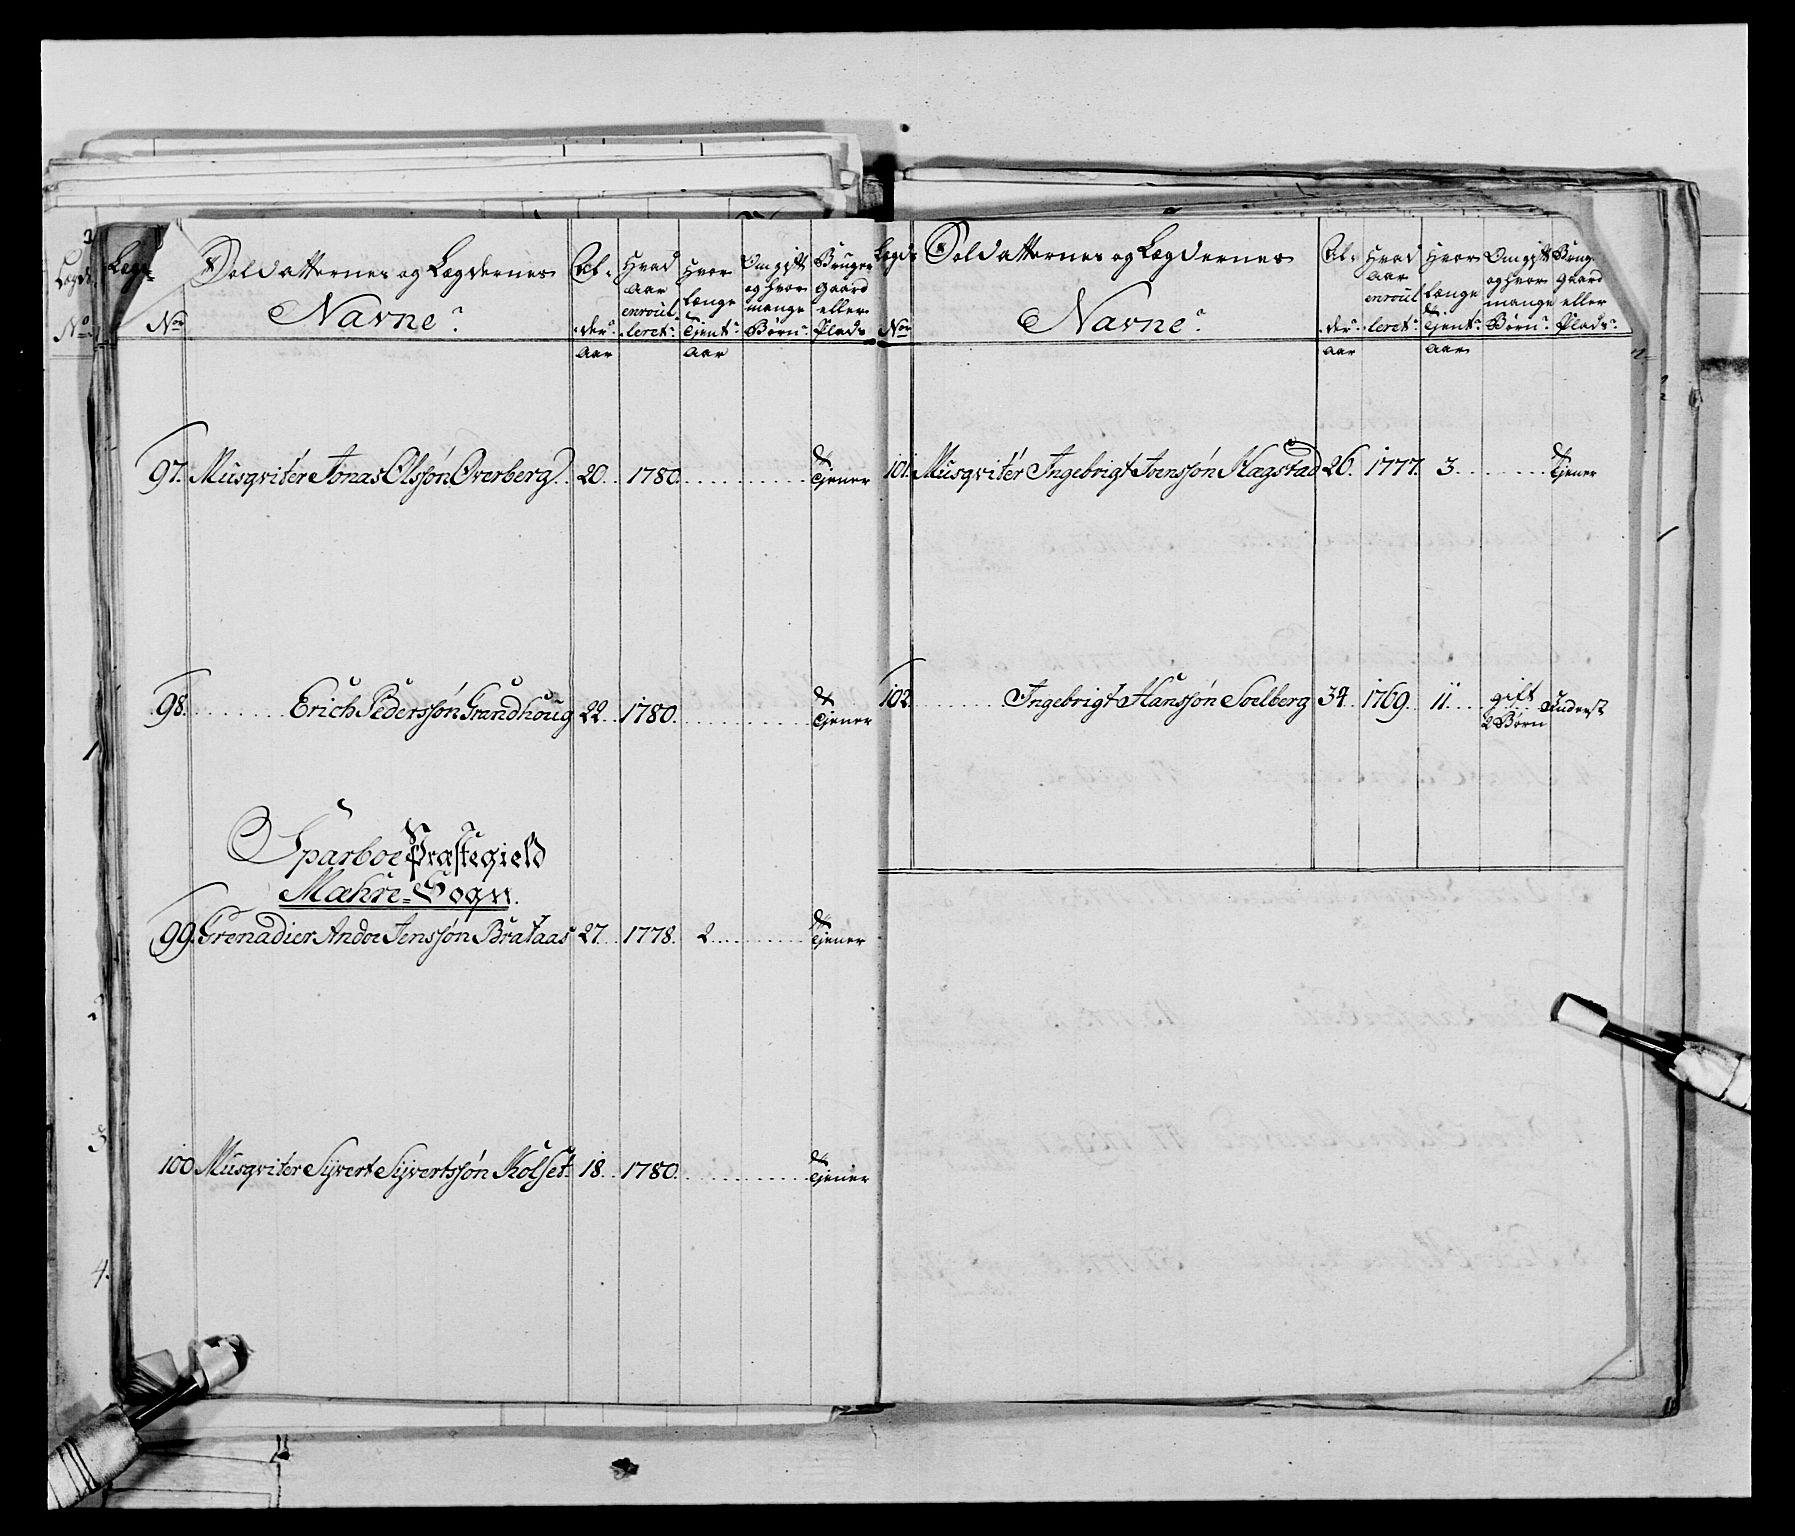 Lægds
No.
Soldatternes og Lægdernes
Navne.
Al-
der.
Aar
Hvad
Aar
enroul
leret.
Hvor
Længe
Tjent.
Aar
Om gift
og hvor
mange
Børn.
Bruger
Gaard
eller
Plads
97. Musqvitér Jonas Olssøn Overberg. 20. 1780. Tjener
98. Erich Pederssøn Grandhoug 22. 1780. Tjener
Sparboe Præstegield
Mæhre Sogn.
99. Grenadier Andoe Jenssøn Brataas 27. 1778. 2. Tjener
100 Musqvitér Syvert Syvertssøn Kolset. 18. 1780. Tjener
2
3
4.
Lægds
No.
Soldatternes og Lægdernes
Navne.
Al-
der.
Aar
Hvad
Aar
enroul
leret.
Hvor
Længe
Tjent.
Aar
Om gift
og hvor
mange
Børn.
Brug
Gaard
eller
Plads.
101. Musqvitér Ingebrigt Joenssøn Hagstad 26. 1777. 3. Tjener
102. Ingebrigt Hanssøn Soelberg 34. 1769. 11. gift 2 Børn Inderst